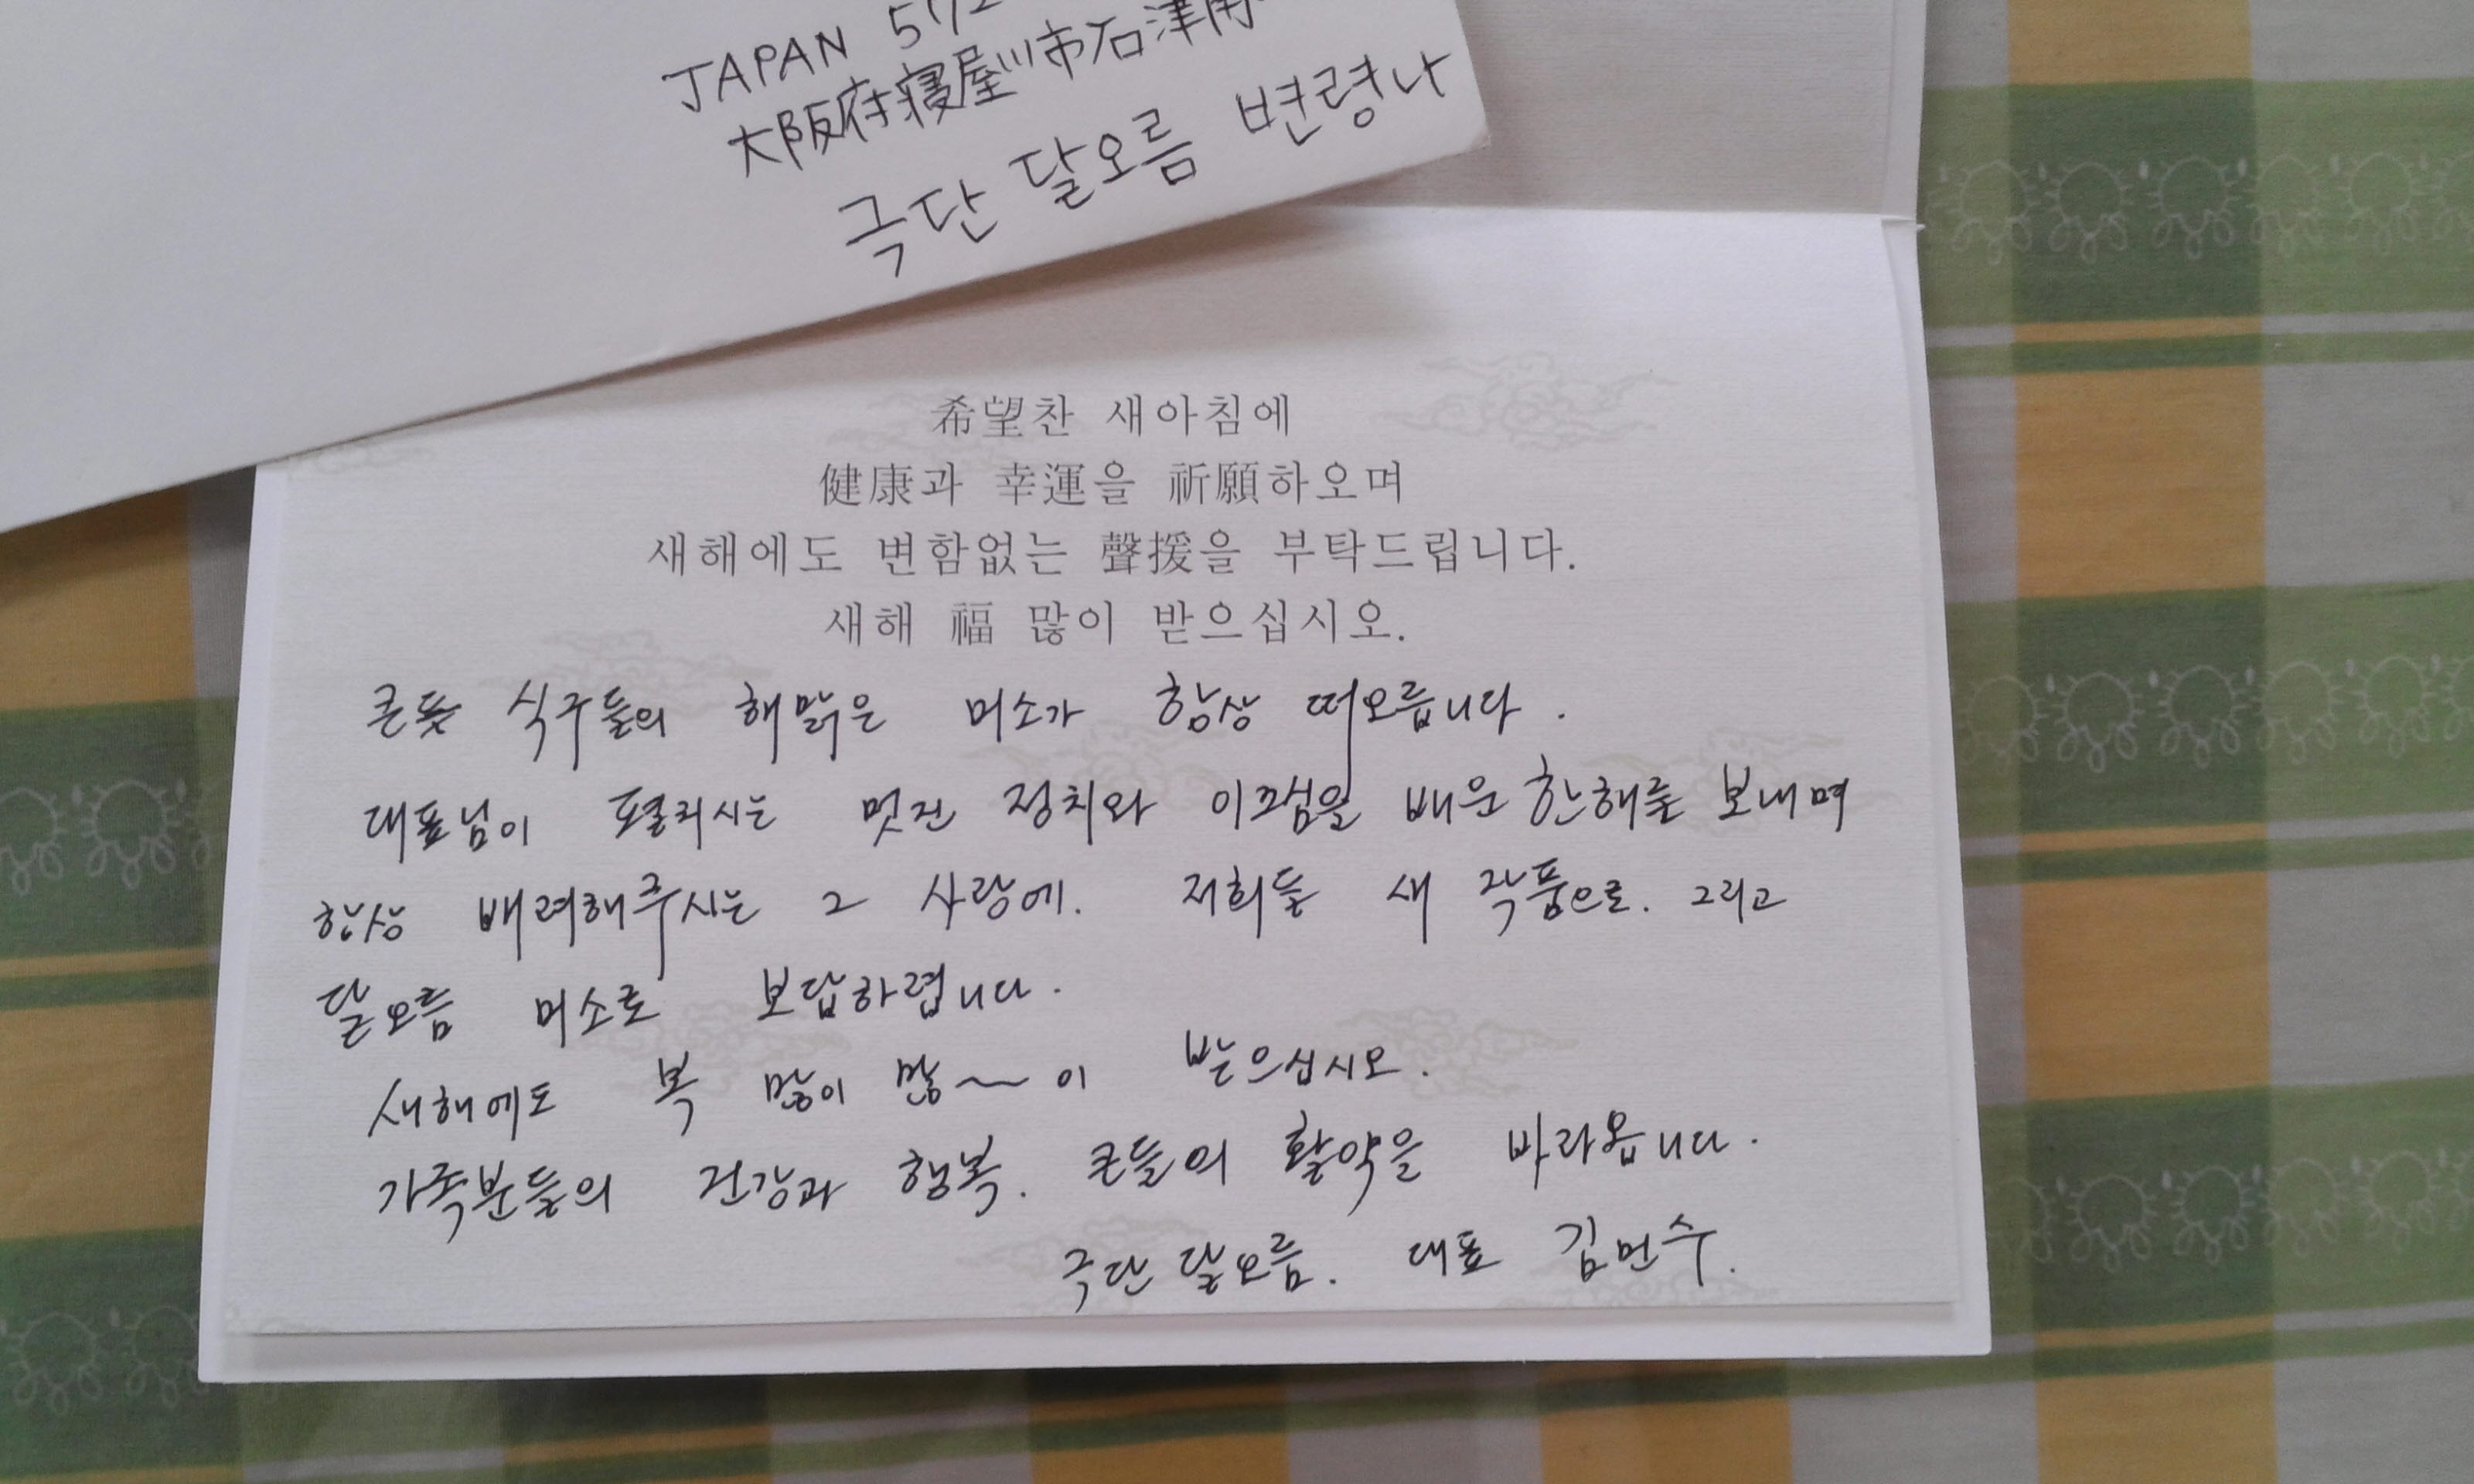 JAPAN 572
大阪府寝屋川市石津南
극단 달오름 변령나
希望찬 새아침에
健康과 幸運을 祈願하오며
새해에도 변함없는 聲援을 부탁드립니다.
새해 福 많이 받으십시오.
큰들 식구들의 해맑은 미소가 항상 떠오릅니다.
대표님이 펼치시는 멋진 정치와 이끄심을 배운 한해를 보내며
항상 배려해주시는 그 사랑에. 저희들 새 작품으로. 그리고
달오름 미소로 보답하렵니다.
새해에도 복 많이 많~이 받으십시오.
가족분들의 건강과 행복. 큰들의 활약을 바라옵니다.
극단 달오름. 대표 김민수.